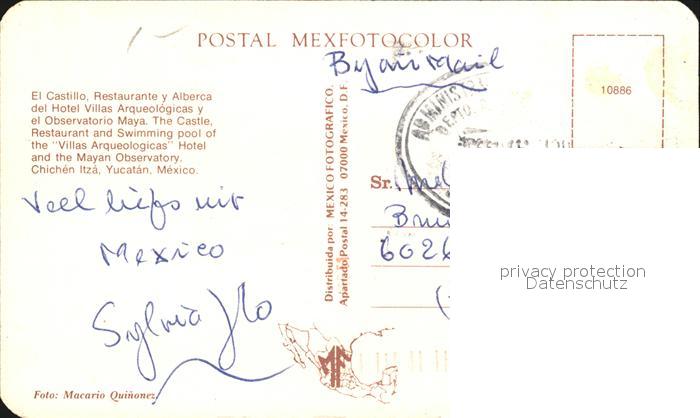 POSTAL MEXFOTOCOLOR
By air Mail
10886
El Castillo, Restaurante y Alberca
del Hotel Villas Arqueológicas y
el Observatorio Maya. The Castle,
Restaurant and Swimming pool of
the "Villas Arqueologicas" Hotel
and the Mayan Observatory.
Chichén Itzá, Yucatán, México.
Veel liefs uit
Mexico
Sylvia
Foto: Macario Quiñonez.
Distribuida por MEXICO FOTOGRAFICO.
Apartado Postal 14-283 07000 Mexico, D.F.
Sr.
6026
MF
privacy protection
Datenschutz